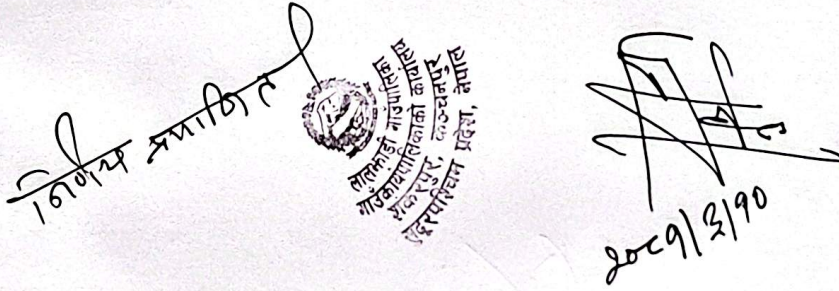 निर्णय प्रमाणित
लालझाडी गाउँपालिका
गाउँकार्यपालिकाको कार्यालय
शंकरपुर, कञ्चनपुर
सुदूरपश्चिम प्रदेश, नेपाल
२०८१/३/१०